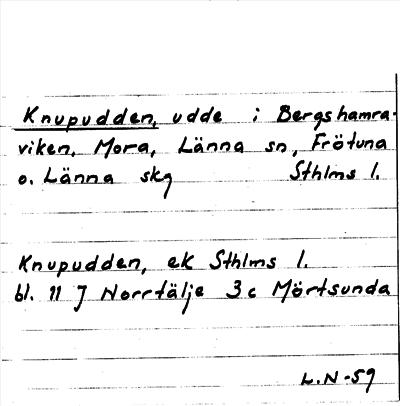 Knupudden, udde i Bergshamra-
viken, Mora, Länna sn, Frötuna
o. Länna skg Sthlms l.
Knupudden, ek Sthlms l.
bl. 11 J Norrtälje 3c Mörtsunda
L.N-59